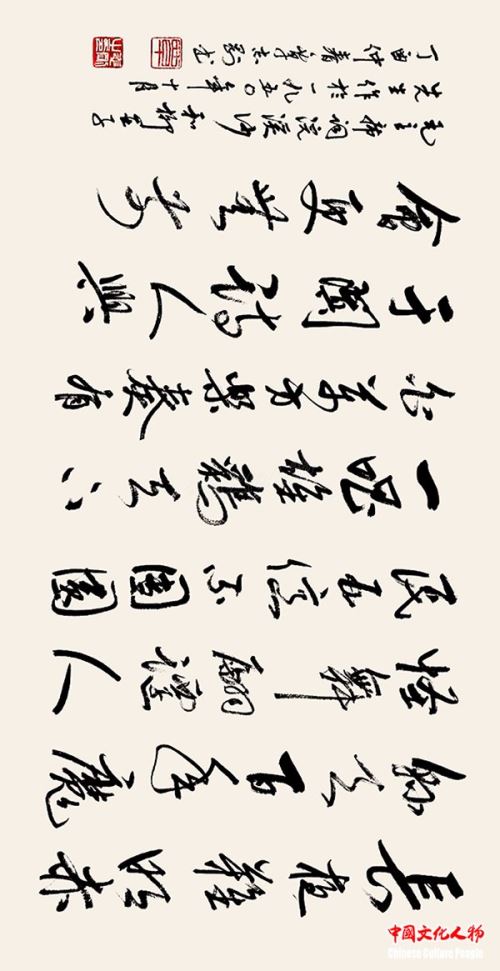 長夜難明赤
縣天百年魔
怪舞翩躚人
民五億不團圓
一唱雄雞天下
白萬方樂奏有
于闐詩人興
會更無前
毛主席詞浣溪沙和柳亞子
先生作於一九五〇年十月
丁酉仲春
中國文化人物
Chinese Culture People